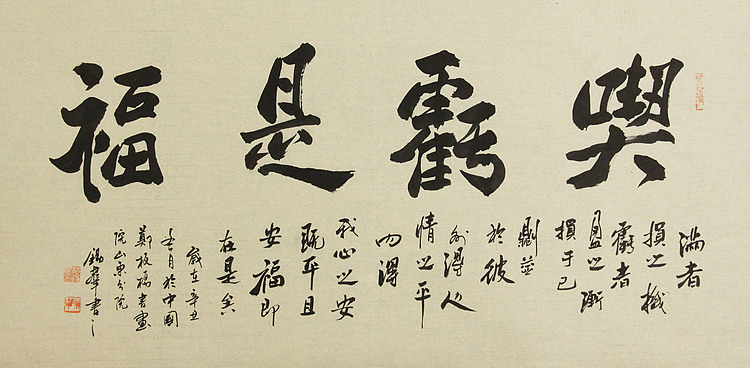 喫虧是福
滿者
損之機
虧者
盈之漸
損于己
則益
於彼
外得人
情之平
內得
我心之安
既平且
安福即
在是矣
歲在辛丑
月於中國
鄭板橋書畫
院山東分院
書之